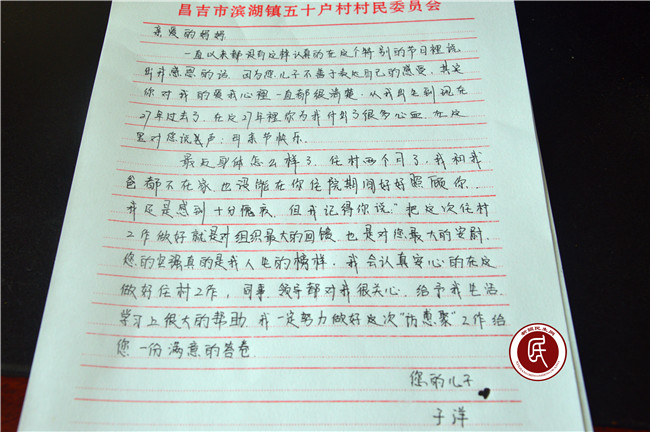 昌吉市滨湖镇五十户村村民委员会
亲爱的妈妈
一直以来都没有这样认真的在这个特别的节日裡说
出我感恩的话. 因为您儿子不善于表达自己的感受. 其实
你对我的爱我心裡一直都很清楚. 从我出生到现在
27年过去了. 在这27年裡你为我付出了很多心血. 在这
里对您说一声: 母亲节快乐.
最近身体怎么样了. 住村两个月了. 我和我
爸都不在家. 也没能在你住院期间好好照顾你.
我还是感到十分愧疚. 但我记得你说. "把这次住村
工作做好就是对组织最大的回馈. 也是对您最大的安慰.
您的坚强真的是我人生的榜样. 我会认真安心的在这
做好住村工作, 同事. 领导都对我很关心. 给予我生活.
学习上很大的帮助. 我一定努力做好这次"访惠聚"工作给
您一份满意的答卷.
您的儿子
子洋
新疆民生网
民